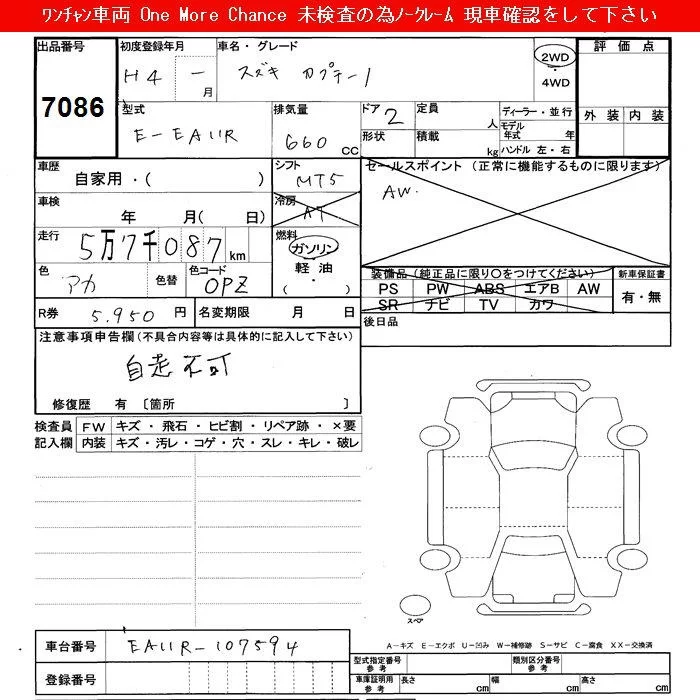 ﾜﾝﾁｬﾝ車両 One More Chance 未検査の為ﾉｰｸﾚｰﾑ 現車確認をして下さい
出品番号 7086
初度登録年月 H4 - 月
車名・グレード スズキ カプチーノ
2WD ・ 4WD
評価点
外装 内装
型式 E-EA11R
排気量 660 CC
ドア 2 形状
定員 人
積載 kg
ディーラー・並行
モデル年式 年
ハンドル 左・右
車歴 自家用・( )
シフト MT5
セールスポイント (正常に機能するものに限ります)
AW.
車検 年 月( 日)
冷房 AT
走行 5万7千087km
燃料 ガソリン 軽油 ( ・ )
色 アカ 色替
色コード OPZ
装備品(純正品に限り○をつけてください)
新車保証書
PS PW ABS エアB AW
有・無
SR ナビ TV カワ
R券 5.950 円
名変期限 月 日
後日品
注意事項申告欄(不具合内容等は具体的に記入して下さい)
自走不可
修復歴 有 〔箇所 〕
検査員 FW キズ・飛石・ヒビ割・リペア跡・×要
記入欄 内装 キズ・汚レ・コゲ・穴・スレ・キレ・破レ
スペア
A-キズ E-エクボ U-凹み W-補修跡 S-サビ C-腐食 XX-交換済
車台番号 EA11R-107594
登録番号
型式指定番号 参考
類別区分番号 参考
車庫証明用 参考 長さ cm 幅 cm 高さ cm